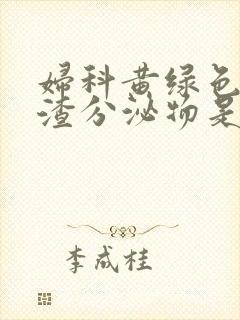 婦科黄绿色
渣分泌物是
李成桂